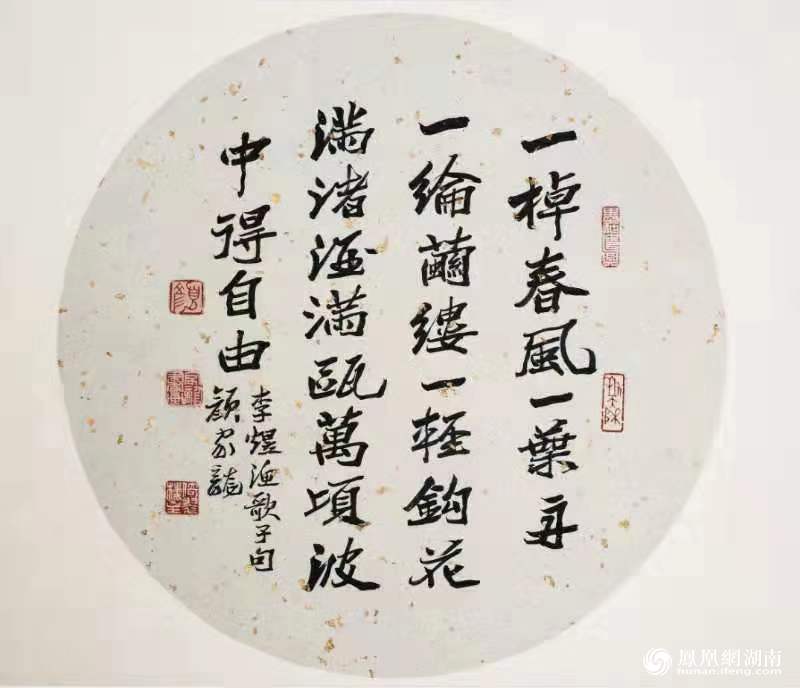 一棹春風一葉舟
一綸繭縷一輕鈎花
满渚酒满甌萬頃波
中得自由
李煜渔歌子句
顏家龍
鳳凰網湖南
hunan.ifeng.com